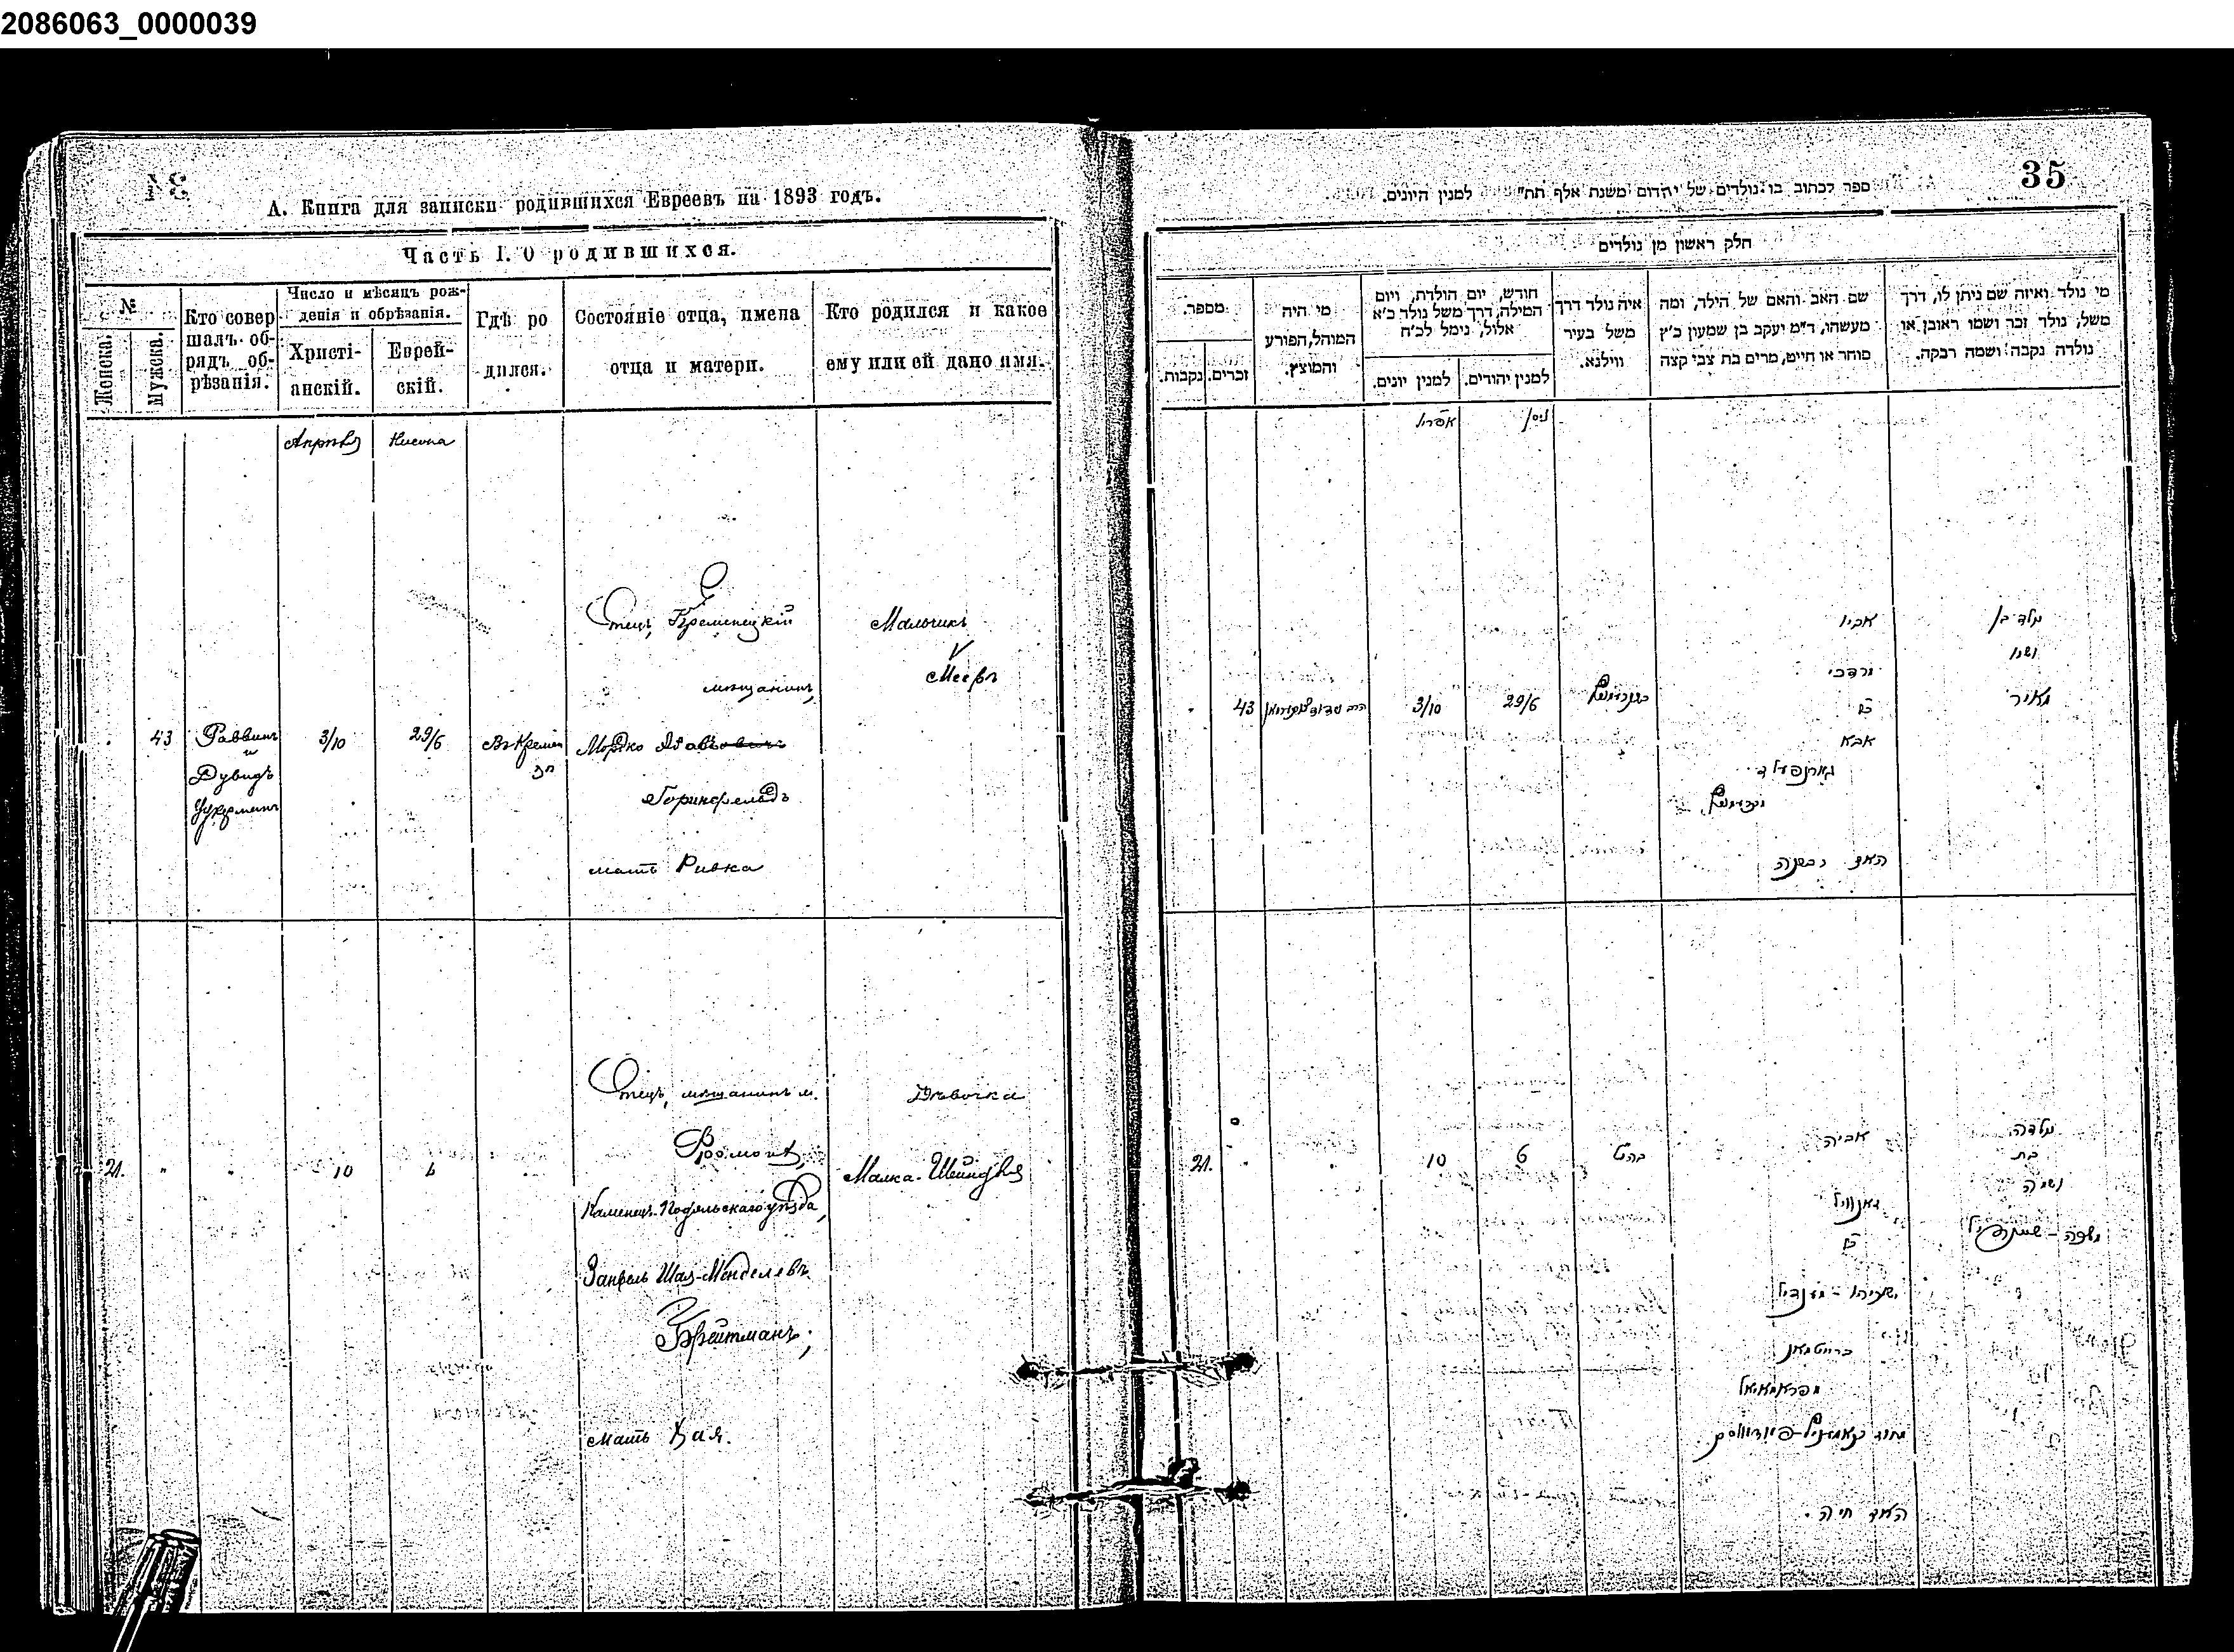 2086063_0000039
А. Книга для записки родившихся Евреевъ на 1893 годъ.
Часть I. О родившихся.
№
Женска.
Мужеска.
Кто совер
шалъ об-
рядъ об-
рѣзанія.
Число и мѣсяцъ рож-
денія и обрѣзанія.
Христі-
анскій.
Еврей-
скій.
Гдѣ ро
дился.
Состояніе отца, имена
отца и матери.
Кто родился и какое
ему или ей дано имя.
Апрѣль
Нисона
43
Раввинъ
и
Дувидъ
Цукерманъ
3/10
29/6
Въ Кремен
Отецъ, Кременецкій
мѣщанинъ,
Мордко
Горинфельдъ
мать Ривка
Мальчикъ
Мееръ
21.
"
"
10
6
Отецъ, мѣщанинъ м.
Каменецъ-Подольскаго уѣзда,
Занвель Шая-Менделевъ
Брейтманъ;
мать Хая.
Дѣвочка
Малка-Шейндля
35
ספר לכתוב בו נולדים של יהדום משנת אלף תת" למנין היונים.
חלק ראשון מן נולדים
מי נולד ואיזה שם ניתן לו, דרך
משל, נולד זכר ושמו ראובן או
נולדה נקבה ושמה רבקה.
שם האב והאם של הילד, ומה
מעשהו, ד"מ יעקב בן שמעון כ"ץ
סוחר או חייט, מרים בת צבי קצה
איה נולד דרך
משל בעיר
ווילנא.
חודש, יום הולדת, ויום
המילה, דרך משל נולד כ"א
אלול, נימל לכ"ח
למנין יהודים.
למנין יונים.
מי היה
המוהל, הפורע
והמוצץ.
מספר.
זכרים.
נקבות.
ניסן
אפריל
נולד בן
ושמו
מאיר
אביו
מרדכי
בן
אבא
גארנפעלד
האם רבקה
29/6
3/10
43
נולדה
בת
ושמה
מלכה - שיינדיל
אביה
זאנוויל
בן
ישעיהו - מענדיל
ברייטמאן
האם חיה.
6
10
21.